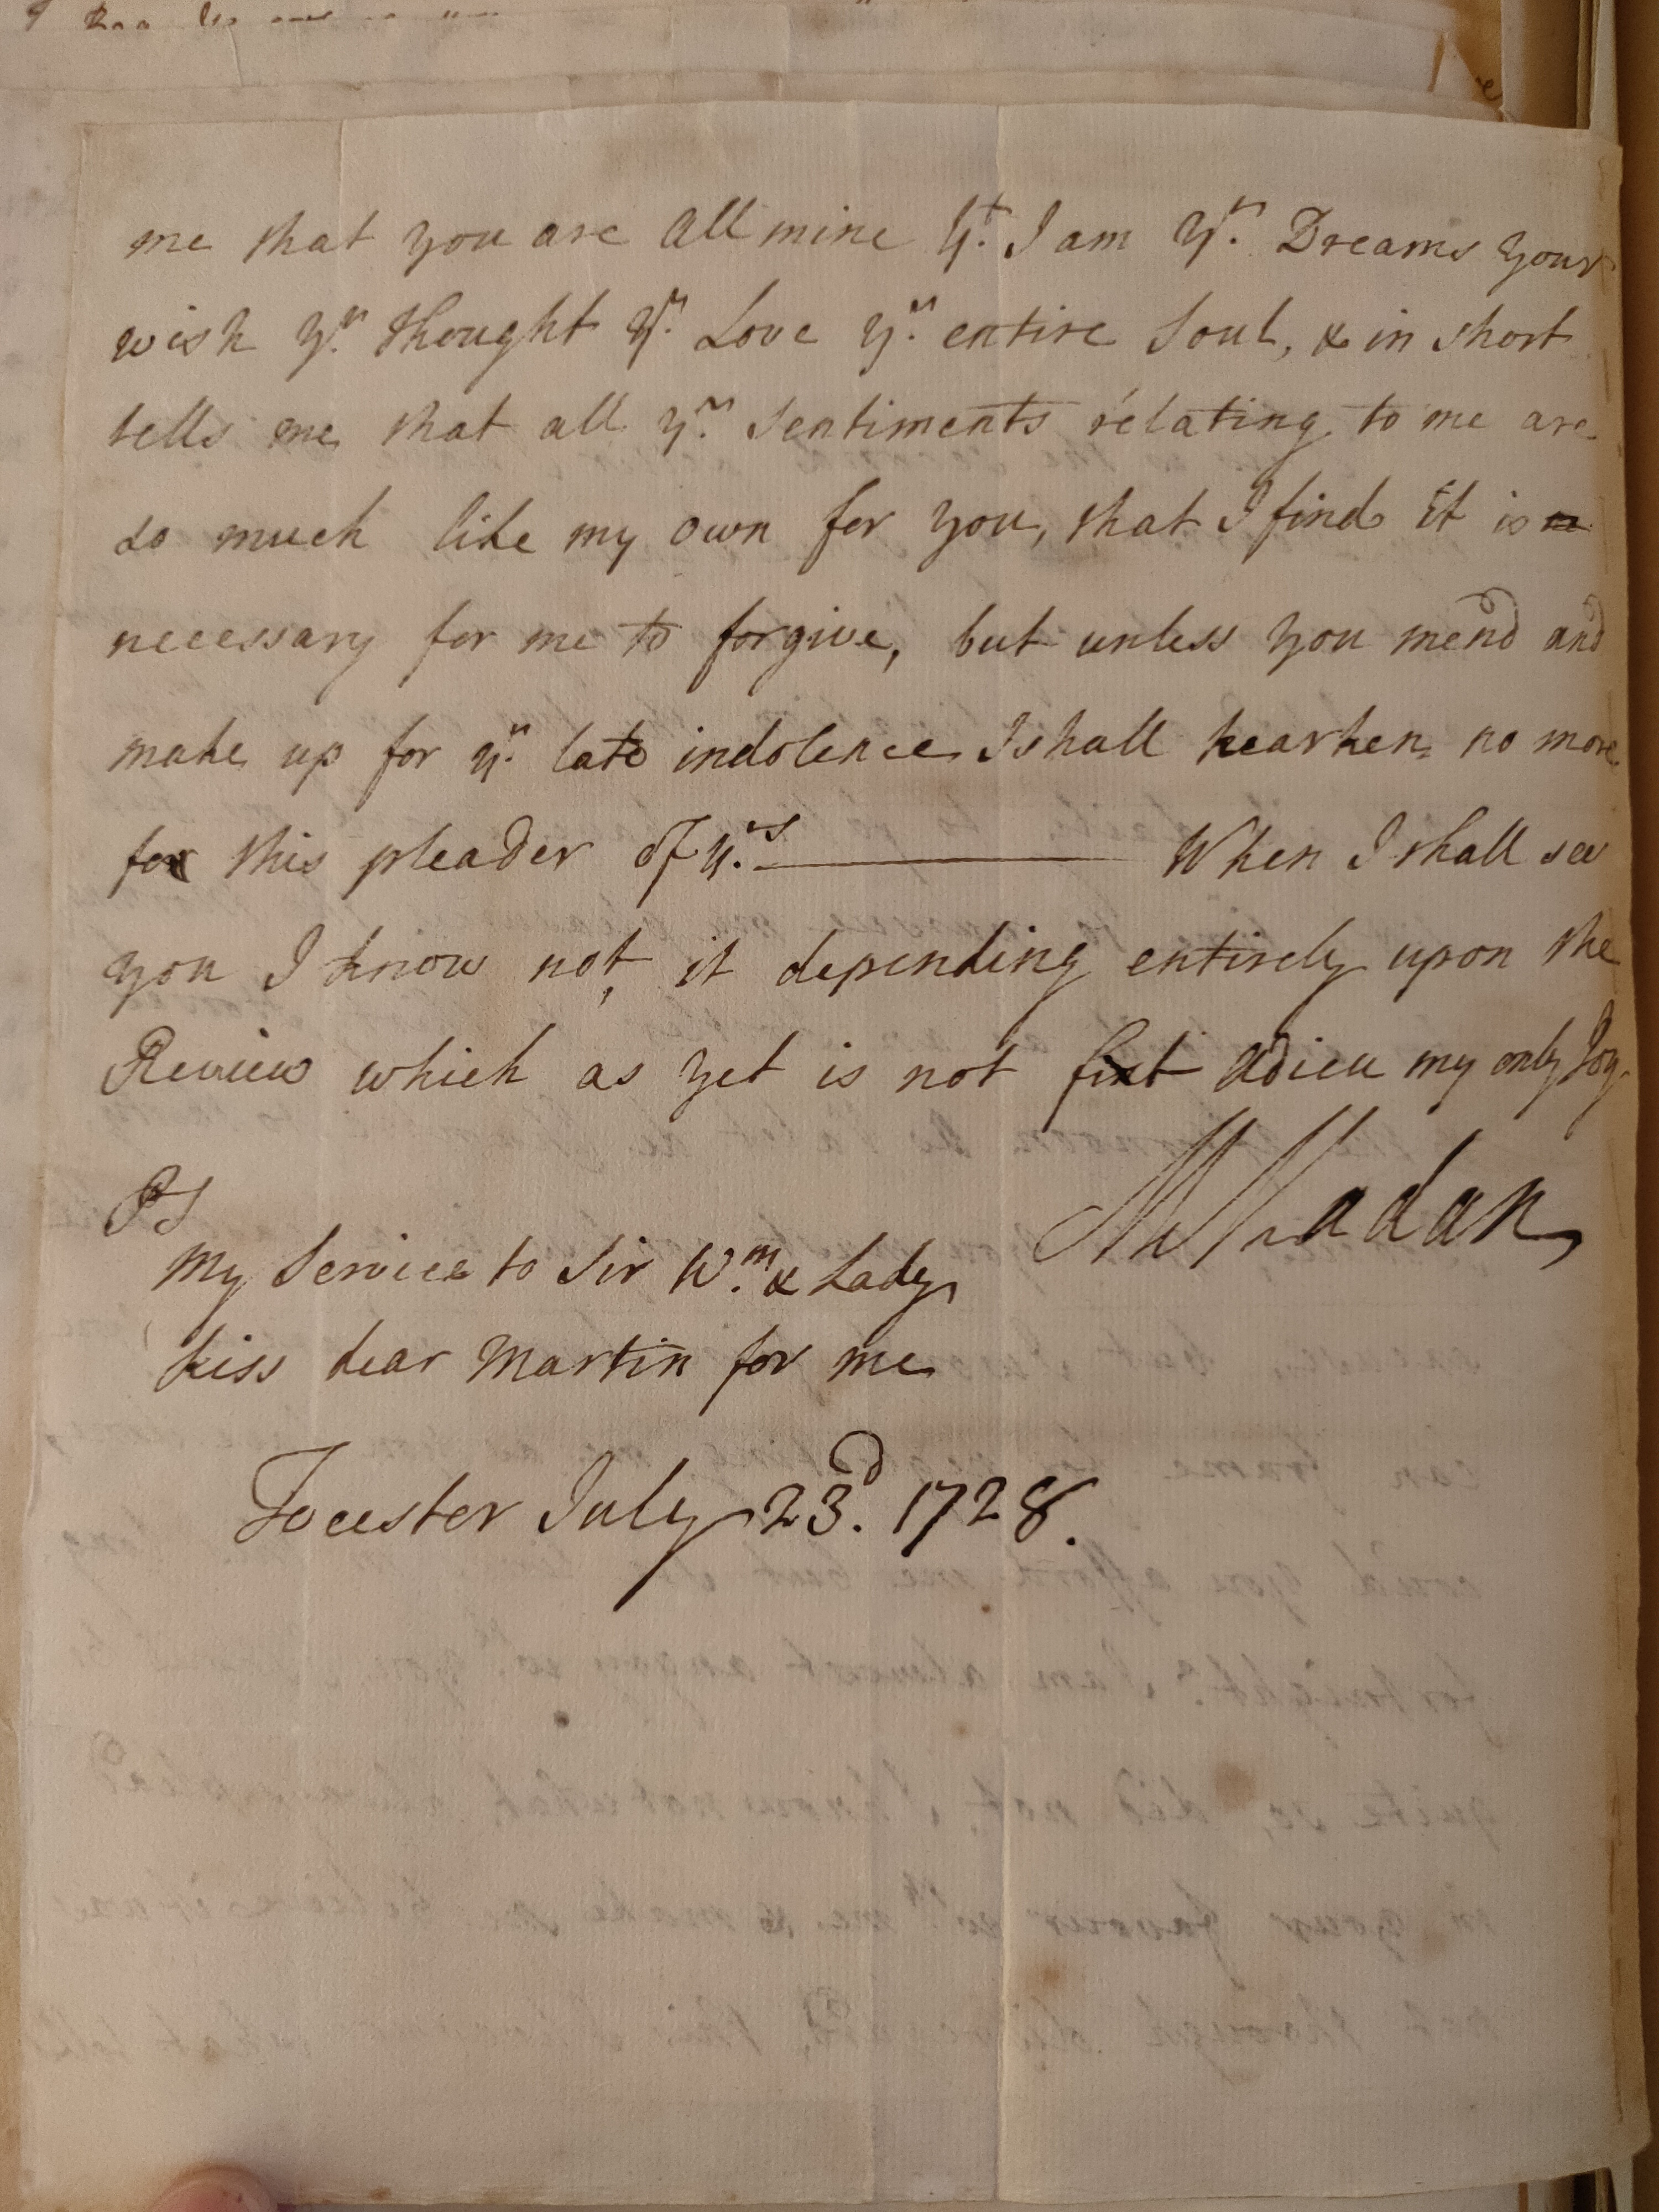 me that you are all mine yt. I am yr. Dreams your
wish yr. thought yr. Love yr. entire Soul, & in short
tells me that all yr. Sentiments relating to me are
so much like my own for you, that I find it is
necessary for me to forgive, but unless you mend and
make up for yr. late indolence I shall hearken no more
for this pleader of yrs. — When I shall see
you I know not, it depending entirely upon the
Review which as yet is not fixt adieu my only Joy.
MMadan
PS
My Service to Sir Wm. & Lady
kiss dear Martin for me
Tocester July 23d. 1728.